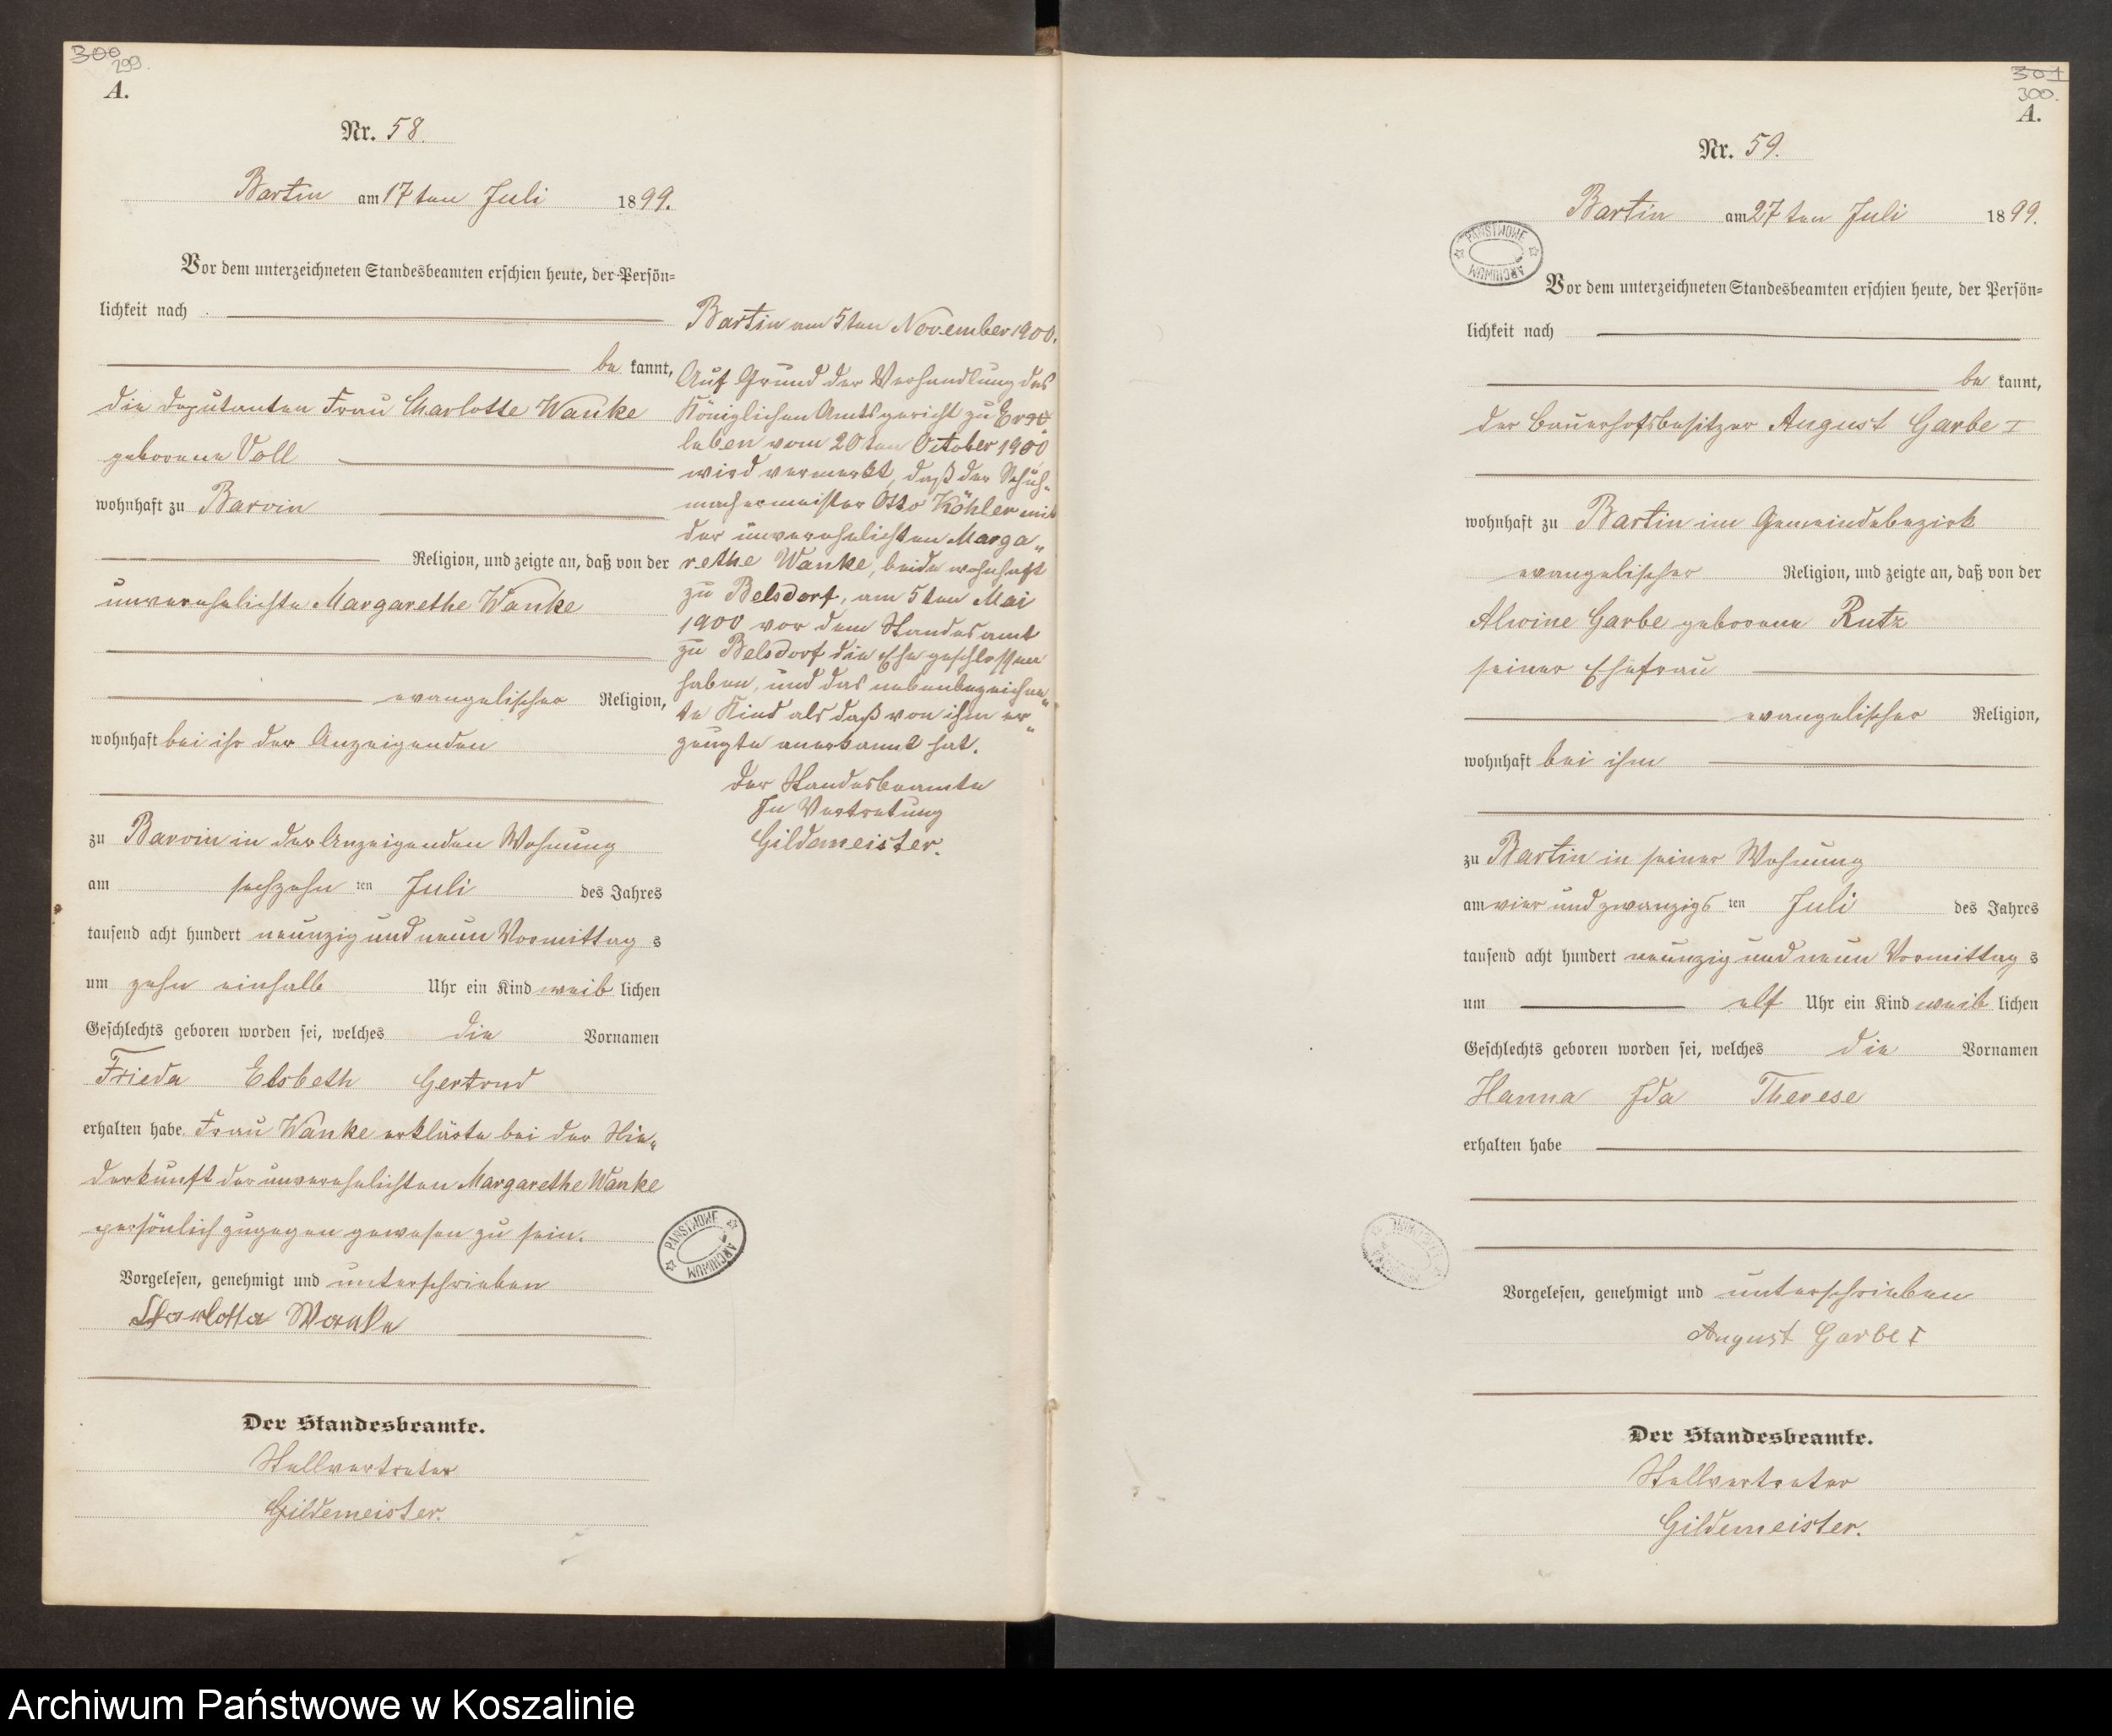 300
299.
A.
Nr. 58.
Bartin am 17ten Juli 1899.
Vor dem unterzeichneten Standesbeamten erschien heute, der Persön=
lichkeit nach
be kannt,
die Deputanten Frau Charlotte Wanke
geborene Voll
wohnhaft zu Barvin
Religion, und zeigte an, daß von der
unverehelichte Margarethe Wanke
evangelischer Religion,
wohnhaft bei ihr der Anzeigenden
zu Barvin in der Anzeigenden Wohnung
am sechzehn ten Juli des Jahres
tausend acht hundert neunzig und neun Vormittag s
um zehn einhalb Uhr ein Kind weib lichen
Geschlechts geboren worden sei, welches die Vornamen
Frieda Elsbeth Gertrud
erhalten habe. Frau Wanke erklärte bei der Nie„
derkunft der unverehelichten Margarethe Wanke
persönlich zugegen gewesen zu sein.
Vorgelesen, genehmigt und unterschrieben
Charlotta Wanke
Der Standesbeamte.
Stellvertreter
Gildemeister.
Bartin am 5ten November 1900.
Auf Grund der Verhandlung des
Königlichen Amtsgericht zu Erx
leben vom 20ten October 1900
wird vermerkt, daß der Schuh-
machermeister Otto Köhler mit
der unverehelichten Marga„
rethe Wanke, beide wohnhaft
zu Belsdorf, am 5ten Mai
1900 vor dem Standesamt
zu Belsdorf die Ehe geschlossen
haben, und das nebenbezeichne„
te Kind als daß von ihm er„
zeugte anerkannt hat.
Der Standesbeamte
In Vertretung
Gildemeister.
PAŃSTWOWE ARCHIWUM
301
300.
A.
Nr. 59.
Bartin am 27ten Juli 1899.
PAŃSTWOWE ARCHIWUM
Vor dem unterzeichneten Standesbeamten erschien heute, der Persön=
lichkeit nach
be kannt,
der Bauerhofsbesitzer August Garbe I
wohnhaft zu Bartin im Gemeindebezirk
evangelischer Religion, und zeigte an, daß von der
Alwine Garbe geborene Rutz
seiner Ehefrau
evangelischer Religion,
wohnhaft bei ihm
zu Bartin in seiner Wohnung
am vier und zwanzigs ten Juli des Jahres
tausend acht hundert neunzig und neun Vormittag s
um elf Uhr ein Kind weib lichen
Geschlechts geboren worden sei, welches die Vornamen
Hanna Ida Therese
erhalten habe
Vorgelesen, genehmigt und unterschrieben
August Garbe I
Der Standesbeamte.
Stellvertreter
Gildemeister.
Archiwum Państwowe w Koszalinie